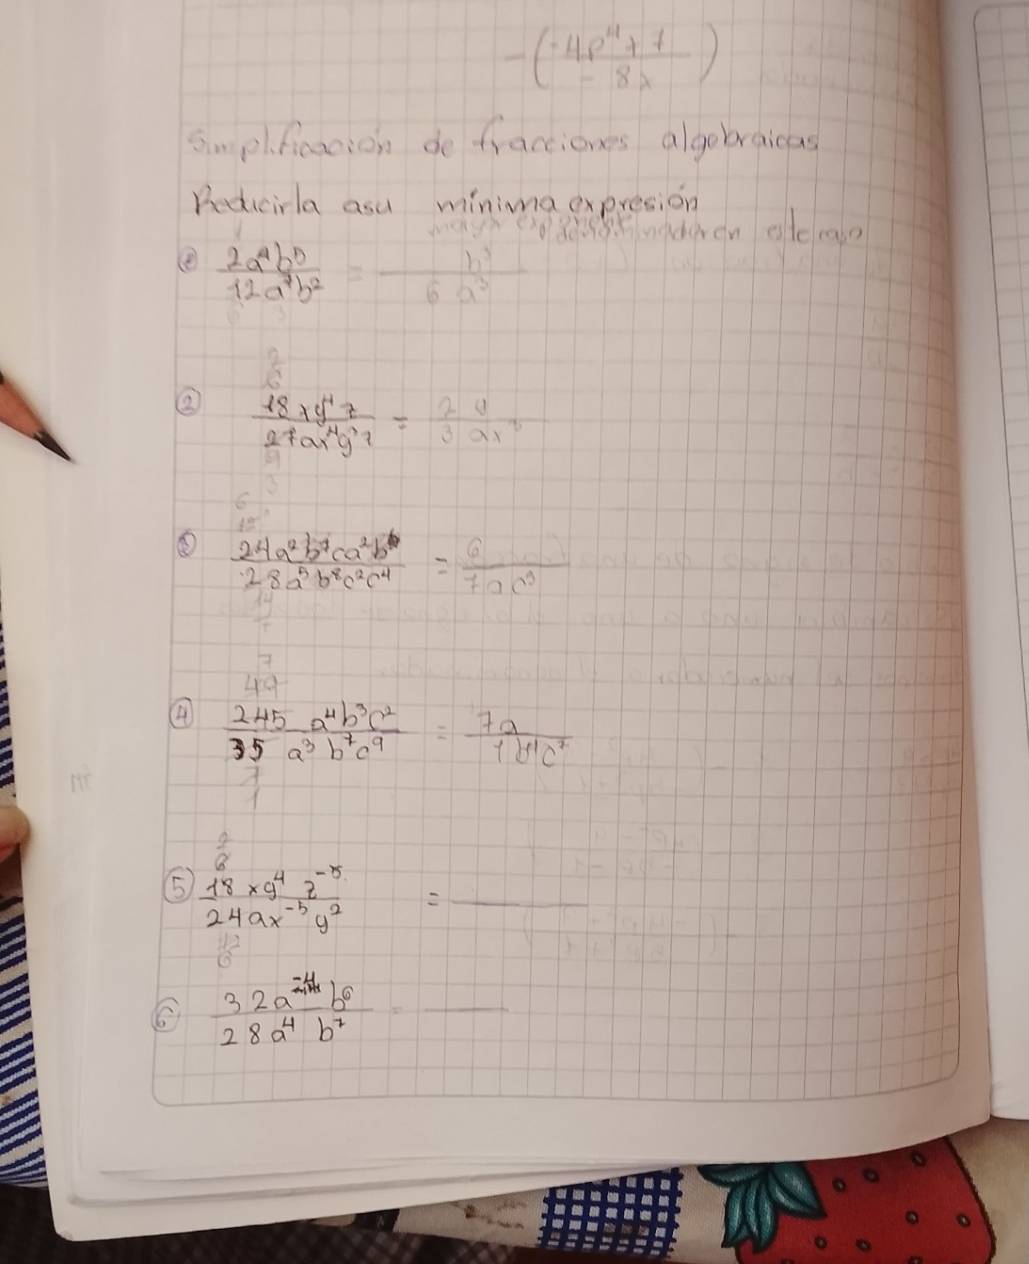 -(-4p⁴+7 / -8x)
Simplificación de fracciones algebraicas
Reducirla asu mínima expresión
este caso
2a⁴b⁵ / 12a⁷b² = b³ / 6 a³
② 18xy⁴z / 27ax⁴y³z = 2 y / 3 ax³
③ 24a²b⁷ca²b / 28a⁵b⁸c²c⁴ = 6 / 7ac⁵
④ 245 a⁴b³c² / 35 a³ b⁷c⁹ = 7a / 1b⁴c⁷
⑤ 18xy⁴ z⁻⁸ / 24ax⁻⁵y² =
⑥ 32a⁻⁴b⁶ / 28a⁴ b⁷ =